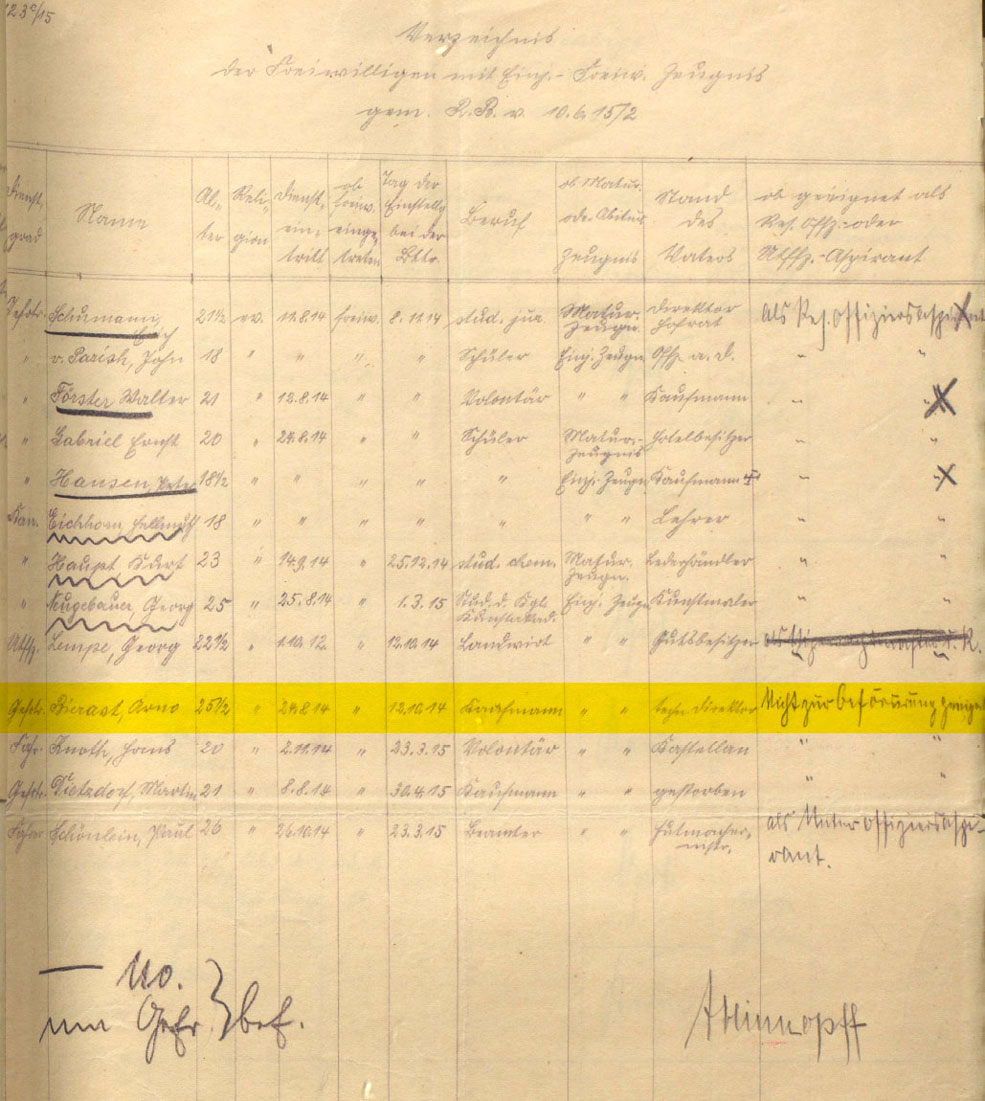 123c/15
Verzeichnis
der Freiwilligen mit Einj.-Freiw. Zeugnis
gem. R.B. v. 10.6.15/2
Dienst- grad Name Al- ter Reli- gion Dienst- ein- tritt ob freiw. einge- treten Tag der Einstellg bei der Bttr. Beruf ob Matur. ode. Abitur. Zeugnis Stand des Vaters ob geeignet als Res. Offz.- oder Utffz.-Aspirant
Schumann, Erich 21½ ev. 11.8.14 freiw. 8.11.14 stud. jur. Matur. Zeugn. Direktor Hofrat als Res. Offiziersaspirant
" v. Parish, John 18 " " " " Schüler Einj. Zeugn. Offz. a. D. " "
" Förster Walter 21 " 12.8.14 " " Volontär " " Kaufmann "
" Gabriel Ernst 20 " 24.8.14 " " Schüler Matur- zeugnis Hotelbesitzer " "
" Hansen, Peter 18½ " " " " " Einj. Zeugn. Kaufmann " "
Kan. Eichhorn, Hellmuth 18 " " " " " " " Lehrer " "
" Haupt, Kurt 23 " 14.9.14 " 25.12.14 stud. chem. Matur. Zeugn. Lederhändler " "
" Neugebauer, Georg 25 " 25.8.14 " 1.3.15 Stud. d. Kgl. Kunstakad. Einj. Zeugn. Kunstmaler " "
Utffz. Lempe, Georg 22½ " 1.10.12 " 12.10.14 Landwirt " " Gutsbesitzer
Gefr. Bierast, Arno 25½ " 24.8.14 " 12.10.14 Kaufmann " " techn. Direktor Nicht zur Beförderung geeignet
Fahr. Knoth, Hans 20 " 2.11.14 " 23.3.15 Volontär " " Kastellan " "
Gefr. Dietzdorf, Martin 21 " 8.8.14 " 30.4.15 Kaufmann " " gestorben " "
Fahr. Schönlein, Paul 26 " 26.10.14 " 23.3.15 Beamter " " Hutmacher- mstr. als Unteroffiziersaspi-
rant.
— Uo.
Gefr. } bef.